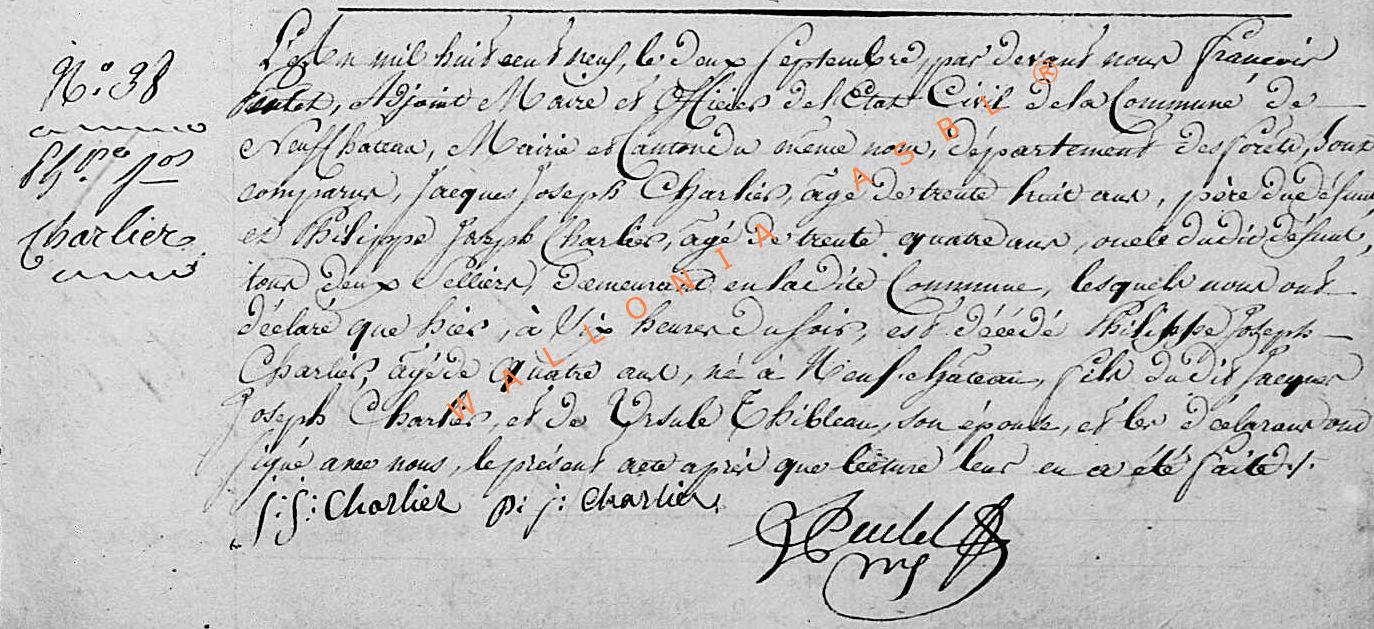 N.° 38
Ph.pe Jos
Charlier
L'An mil huit cent neuf, le deux Septembre, par devant nous François
Adjoint Maire et Officier de l'Etat Civil de la Commune de
Neufchateau, Mairie et Canton du même nom, département des forêts, sont
comparus, Jacques Joseph Charlier, âgé de trente huit ans, père du défunt
et Philippe Joseph Charlier, âgé de trente quatre ans, oncle dudit défunt,
tous deux Selliers, demeurant en ladite Commune, lesquels nous ont
déclaré que hier, à Six heures du soir, est décédé Philippe Joseph
Charlier, âgé de quatre ans, né à Neufchâteau, fils dudit Jacques
Joseph Charlier, et de Ursule Thibleau, son épouse, et les déclarans ont
signé avec nous, le présent acte après que lecture leur en a été faite.
J: J: Charlier P: J: Charlier
WALLONIA ASBL ®